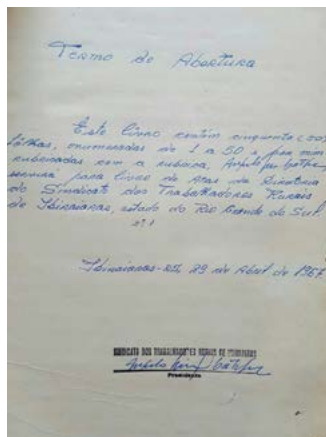 Termo de Abertura
Este livro contém cinquenta (50)
fôlhas, enumeradas de 1 a 50 e por mim
rubricadas com a rubrica,
servirá para livro de Atas da Diretoria
do Sindicato dos Trabalhadores Rurais
de Ibiraiaras, estado do Rio Grande do Sul.
nº 1
Ibiraiaras-RS, 29 de Abril de 1967
SINDICATO DOS TRABALHADORES RURAIS DE IBIRAIARAS
Presidente